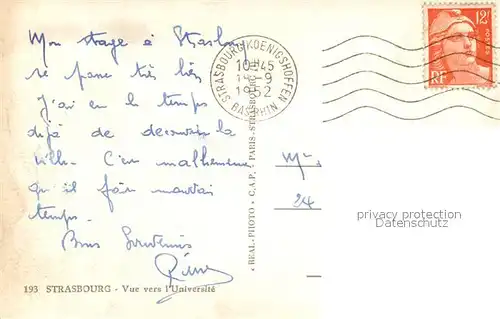 Mon stage à Strasbourg
se passe très bien
J'ai eu le temps
déjà de découvrir la
ville. C'est malheureux
qu'il fait mauvais
temps.
Bons Souvenirs
193 STRASBOURG - Vue vers l'Université
STRASBOURG KOENIGSHOFFEN
10H45
9
1952
BAS-RHIN
"REAL-PHOTO" C.A.P. PARIS-STRASBOURG
12F
POSTES
RF
Mr.
24
privacy protection
Datenschutz